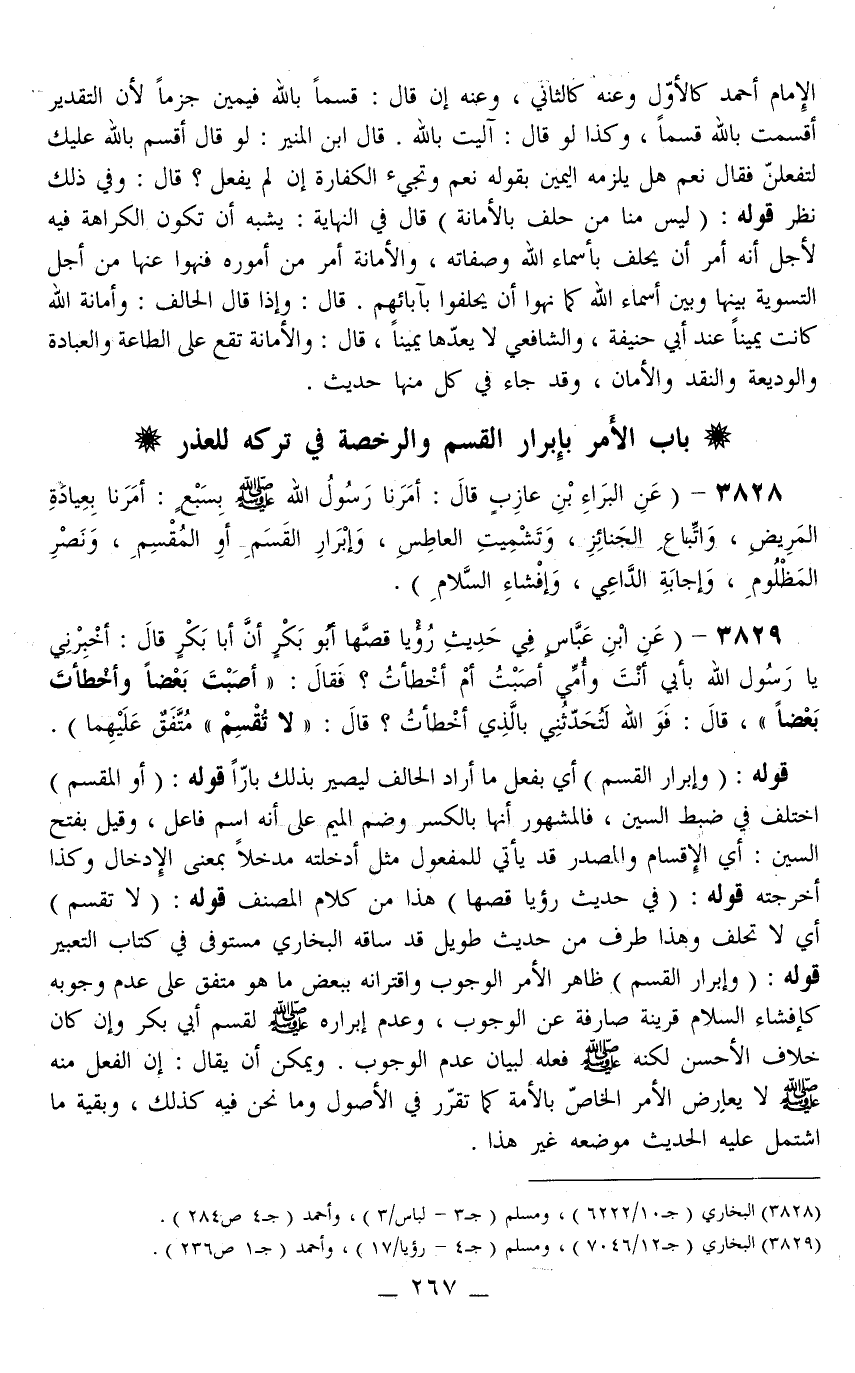 الإمام أحمد كالأوّل وعنه كالثاني ، وعنه إن قال : قسماً بالله فيمين جزماً لأن التقدير
أقسمت بالله قسماً ، وكذا لو قال : آليت بالله . قال ابن المنير : لو قال أقسم بالله عليك
لتفعلنّ فقال نعم هل يلزمه اليمين بقوله نعم وتجيء الكفارة إن لم يفعل ؟ قال : وفي ذلك
نظر قوله : ( ليس منا من حلف بالأمانة ) قال في النهاية : يشبه أن تكون الكراهة فيه
لأجل أنه أمر أن يحلف بأسماء الله وصفاته ، والأمانة أمر من أموره فنهوا عنها من أجل
التسوية بينها وبين أسماء الله كما نهوا أن يحلفوا بآبائهم . قال : وإذا قال الحالف : وأمانة الله
كانت يميناً عند أبي حنيفة ، والشافعي لا يعدّها يميناً ، قال : والأمانة تقع على الطاعة والعبادة
والوديعة والنقد والأمان ، وقد جاء في كل منها حديث .
باب الأمر بإبرار القسم والرخصة في تركه للعذر
٣٨٢٨ - ( عَنِ البَراءِ بْنِ عازِبٍ قالَ : أمَرَنا رَسُولُ الله ﷺ بِسَبْعٍ : أمَرَنا بِعِيادَةِ
المَرِيضِ ، وَاتِّباعِ الجَنائِزِ ، وَتَشْمِيتِ العاطِسِ ، وَإبْرَارِ القَسَمِ أوِ المُقْسِمِ ، وَنَصْرِ
المَظْلُومِ ، وَإجابَةِ الدَّاعِي ، وَإفْشاءِ السَّلامِ ) .
٣٨٢٩ - ( عَنِ ابْنِ عَبَّاسٍ فِي حَدِيثِ رُؤْيا قصَّها أبُو بَكْرٍ أنَّ أبا بَكْرٍ قالَ : أخْبِرْنِي
يا رَسُولَ الله بأبي أنْتَ وأُمِّي أصَبْتُ أمْ أخْطأتُ ؟ فَقالَ : « أصَبْتَ بَعْضاً وأخْطأتَ
بَعْضاً » ، قالَ : فَوَ الله لَتُحَدّثُنِي بالَّذِي أخْطأتُ ؟ قالَ : « لا تُقْسِمْ » مُتَّفَقٌ عَلَيْهِما ) .
قوله : ( وإبرار القسم ) أي بفعل ما أراد الحالف ليصير بذلك بارّاً قوله : ( أو المقسم )
اختلف في ضبط السين ، فالمشهور أنها بالكسر وضم الميم على أنه اسم فاعل ، وقيل بفتح
السين : أي الإقسام والمصدر قد يأتي للمفعول مثل أدخلته مدخلاً بمعنى الإدخال وكذا
أخرجته قوله : ( في حديث رؤيا قصها ) هذا من كلام المصنف قوله : ( لا تقسم )
أي لا تحلف وهذا طرف من حديث طويل قد ساقه البخاري مستوفى في كتاب التعبير
قوله : ( وإبرار القسم ) ظاهر الأمر الوجوب واقترانه ببعض ما هو متفق على عدم وجوبه
كإفشاء السلام قرينة صارفة عن الوجوب ، وعدم إبراره ﷺ لقسم أبي بكر وإن كان
خلاف الأحسن لكنه ﷺ فعله لبيان عدم الوجوب . ويمكن أن يقال : إن الفعل منه
ﷺ لا يعارض الأمر الخاصّ بالأمة كما تقرّر في الأصول وما نحن فيه كذلك ، وبقية ما
اشتمل عليه الحديث موضعه غير هذا .
(٣٨٢٨) البخاري ( جـ١٠/٦٢٢٢ ) ، ومسلم ( جـ٣ - لباس/٣ ) ، وأحمد ( جـ٤ ص٢٨٤ ) .
(٣٨٢٩) البخاري ( جـ١٢/٧٠٤٦ ) ، ومسلم ( جـ٤ - رؤيا/١٧ ) ، وأحمد ( جـ١ ص٢٣٦ ) .
_ ٢٦٧ _